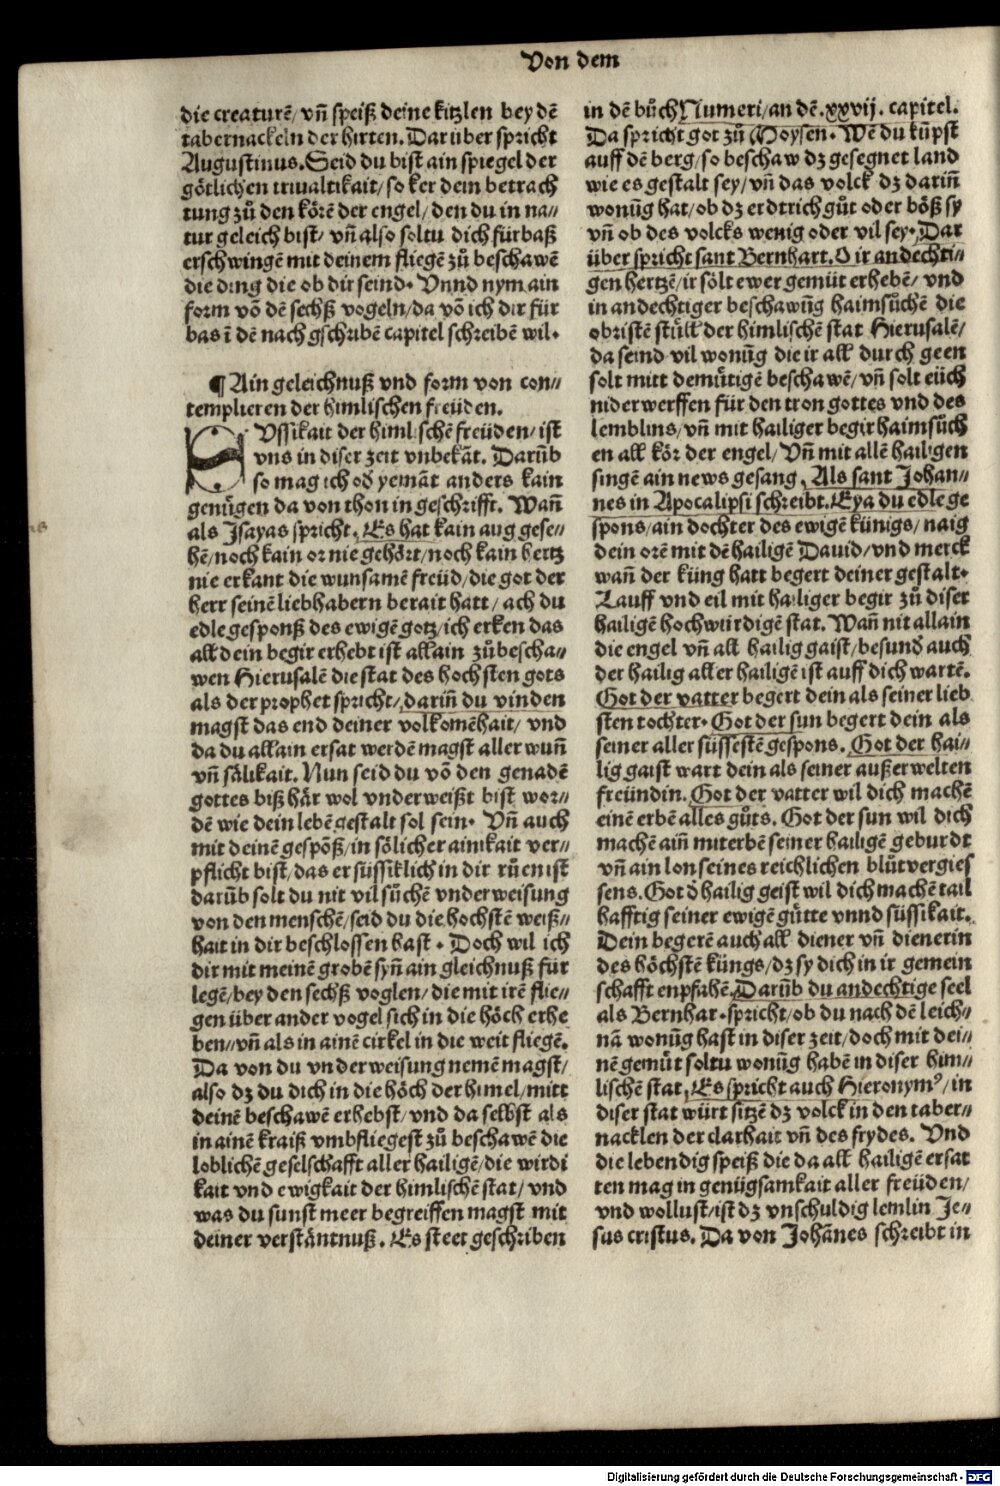 Von dem
die creaturẽ/ vñ speiß deine kitzlen bey dẽ
tabernackeln der hirten. Darüber spricht
Augustinus. Seid du bist ain spiegel der
götlichen triualtikait/ so ker dein betrach
tung zů den körẽ der engel/ den du in na⸗
tur geleich bist/ vñ also soltu dich fürbaß
erschwingẽ mit deinem fliegẽ zů beschawẽ
die ding die ob dir seind. Vnnd nym ain
form võ dẽ sechß vogeln/ da võ ich dir für
bas ĩ dẽ nach gschribẽ capitel schreibẽ wil.
¶ Ain geleichnuß vnd form von con⸗
templieren der himlischen freüden.
SVssikait der himlischẽ freüden/ ist
vns in diser zeit vnbekãt. Darũb
so mag ich oď yemãt anders kain
genügen da von thon in geschrifft. Wañ
als Jsayas spricht. Es hat kain aug gese⸗
hẽ/ noch kain or nie gehört/ noch kain hertz
nie erkant die wunsamẽ freüd/ die got der
herr seinẽ liebhabern berait hatt/ ach du
edle gesponß des ewigẽ gotz/ ich erken das
all dein begir erhebt ist allain zů bescha⸗
wen Hierusalẽ die stat des hochsten gots
als der prophet spricht/ dariñ du vinden
magst das end deiner volkomẽhait/ vnd
da du allain ersat werdẽ magst aller wuñ
vñ sälikait. Nun seid du võ den genadẽ
gottes biß här wol vnderweißt bist wor⸗
dẽ wie dein lebẽ gestalt sol sein. Vñ auch
mit deinẽ gespõß/ in sölicher ainikait ver⸗
pflicht bist/ das er süssiklich in dir růen ist
darũb solt du nit vil sůchẽ vnderweisung
von den menschẽ/ seid du die hochstẽ weiß⸗
hait in dir beschlossen hast. Doch wil ich
dir mit meinẽ grobẽ syñ ain gleichnuß für
legẽ/ bey den sechß voglen/ die mit irẽ flie⸗
gen über ander vogel sich in die höch erhe
ben⸗ vñ als in ainẽ cirkel in die weit fliegẽ.
Da von du vnderweisung nemẽ magst/
also dz du dich in die höch der himel/ mitt
deinẽ beschawẽ erhebst/ vnd da selbst als
in ainẽ kraiß vmbfliegest zů beschawẽ die
loblichẽ geselschafft aller hailigẽ/ die wirdi
kait vnd ewigkait der himlischẽ stat/ vnd
was du sunst meer begreiffen magst mit
deiner verstäntnuß. Es steet geschriben
in dẽ bůch Numeri/ an dẽ .xxvij. capitel.
Da spricht got zů Moysen. Wẽ du küpst
auff dẽ berg/ so beschaw dz gesegnet land
wie es gestalt sey/ vñ das volck dz dariñ
wonũg hat/ ob dz erdtrich gůt oder böß sy
vñ ob des volcks wenig oder vil sey. Dar
über spricht sant Bernhart. O ir andechti⸗
gen hertzẽ/ ir sölt ewer gemüt erhebẽ/ vnd
in andechtiger beschawũg haimsůchẽ die
obristẽ stüll der himlischẽ stat Hierusalẽ/
da seind vil wonũg die ir all durch geen
solt mitt demütigẽ beschawẽ/ vñ solt eüch
niderwerffen für den tron gottes vnd des
lemblins/ vñ mit hailiger begir haimsůch
en all kör der engel/ Vñ mit allẽ hailigen
singẽ ain news gesang. Als sant Johan⸗
nes in Apocalipsi schreibt. Eya du edle ge
spons/ ain dochter des ewigẽ künigs/ naig
dein orẽ mit dẽ hailigẽ Dauid/ vnd merck
wañ der küng hatt begert deiner gestalt.
Lauff vnd eil mit hailiger begir zů diser
hailigẽ hochwürdigẽ stat. Wañ nit allain
die engel vñ all hailig gaist/ besunď auch
der hailig aller hailigẽ ist auff dich wartẽ.
Got der vatter begert dein als seiner lieb
sten tochter. Got der sun begert dein als
seiner aller süssestẽ gespons. Got der hai⸗
lig gaist wart dein als seiner außerwelten
freündin. Got der vatter wil dich machẽ
einẽ erbẽ alles gůts. Got der sun wil dich
machẽ aiñ miterbẽ seiner hailigẽ geburdt
vñ ain lon seines reichlichen blůtvergies
sens. Got ď hailig geist wil dich machẽ tail
hafftig seiner ewigẽ gütte vnnd süssikait.
Dein begerẽ auch all diener vñ dienerin
des höchstẽ küngs/ dz sy dich in ir gemein
schafft enpfahẽ. Darũb du andechtige seel
als Bernhar. spricht/ ob du nach dẽ leich⸗
nã wonũg hast in diser zeit/ doch mit dei⸗
nẽ gemüt soltu wonũg habẽ in diser him⸗
lischẽ stat. Es spricht auch Hieronymꝰ/ in
diser stat würt sitzẽ dz volck in den taber⸗
nacklen der clarhait vñ des frydes. Vnd
die lebendig speiß die da all hailigẽ ersat
ten mag in genügsamkait aller freüden/
vnd wollust/ ist dz vnschuldig lemlin Je⸗
sus cristus. Da von Johãnes schreibt in
Digitalisierung gefördert durch die Deutsche Forschungsgemeinschaft - DFG